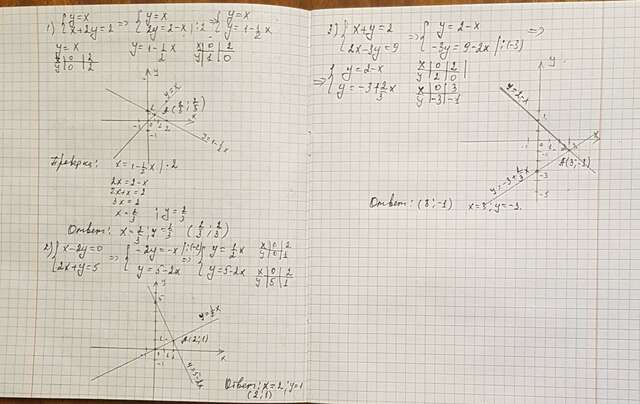 1) { y=x
x+2y=2 => { y=x
2y=2-x |:2 => { y=x
y=1-½x
y=x y=1-½x
x|0|2
y|0|2
x|0|2
y|1|0
y
y=x
A(⅔;⅔)
y=1-½x
x
x=1-½x |·2
2x=2-x
2x+x=2
3x=2
x=⅔ ; y=⅔
Ответ: x=⅔; y=⅔ (⅔;⅔)
2) { x-2y=0
2x+y=5 => { -2y=-x |:(-2)
y=5-2x => { y=½x
y=5-2x
x|0|2
y|0|1
x|0|2
y|5|1
y
5
y=½x
A(2;1)
x
y=5-2x
Ответ: x=2; y=1
(2;1)
3) { x+y=2
2x-3y=9 => { y=2-x
-3y=9-2x |:(-3) =>
=> { y=2-x
y=-3+⅔x
x|0|2
y|2|0
x|0|3
y|-3|-1
y
y=2-x
x
A(3;-1)
-3
y=-3+⅔x
Ответ: (3;-1) x=3; y=-1.